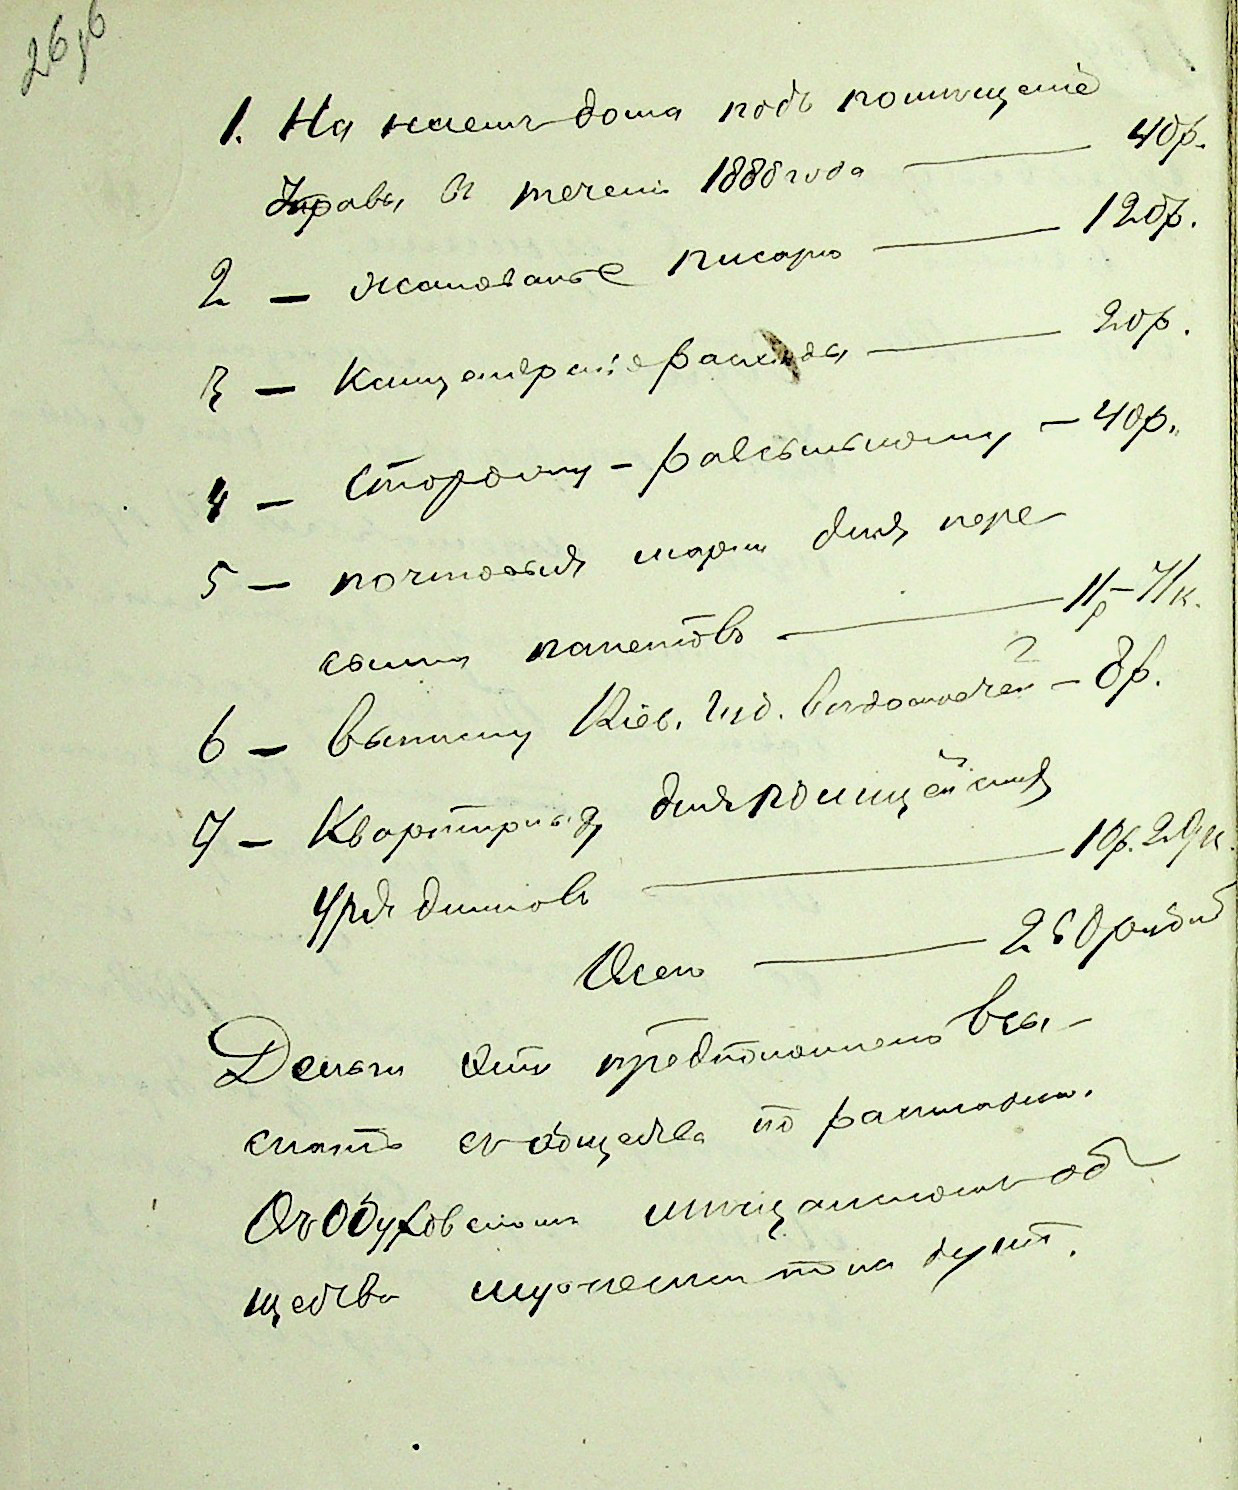 26 об
1. На наемъ дома подъ помѣщеніе
Управы въ теченіи 1888 года — 40 р.
2 — жалованье писарю — 120 р.
3 — Канцелярскіе расходы — 20 р.
4 — Сторожу - разсыльному — 40 р.
5 — почтовыя марки для пере-
сылки пакетовъ — 11 р - 71 к.
6 — выписку Кіев. Губ. вѣдомостей — 8 р.
7 — Квартирныхъ для полицейскихъ
Урядниковъ — 10 р. 29 к.
Всего — 250 рублей
Деньги эти предположено взы-
скать съ общества по раскладкѣ.
Въ Обуховскомъ мѣщанскомъ об
щества мужеска пола душъ.